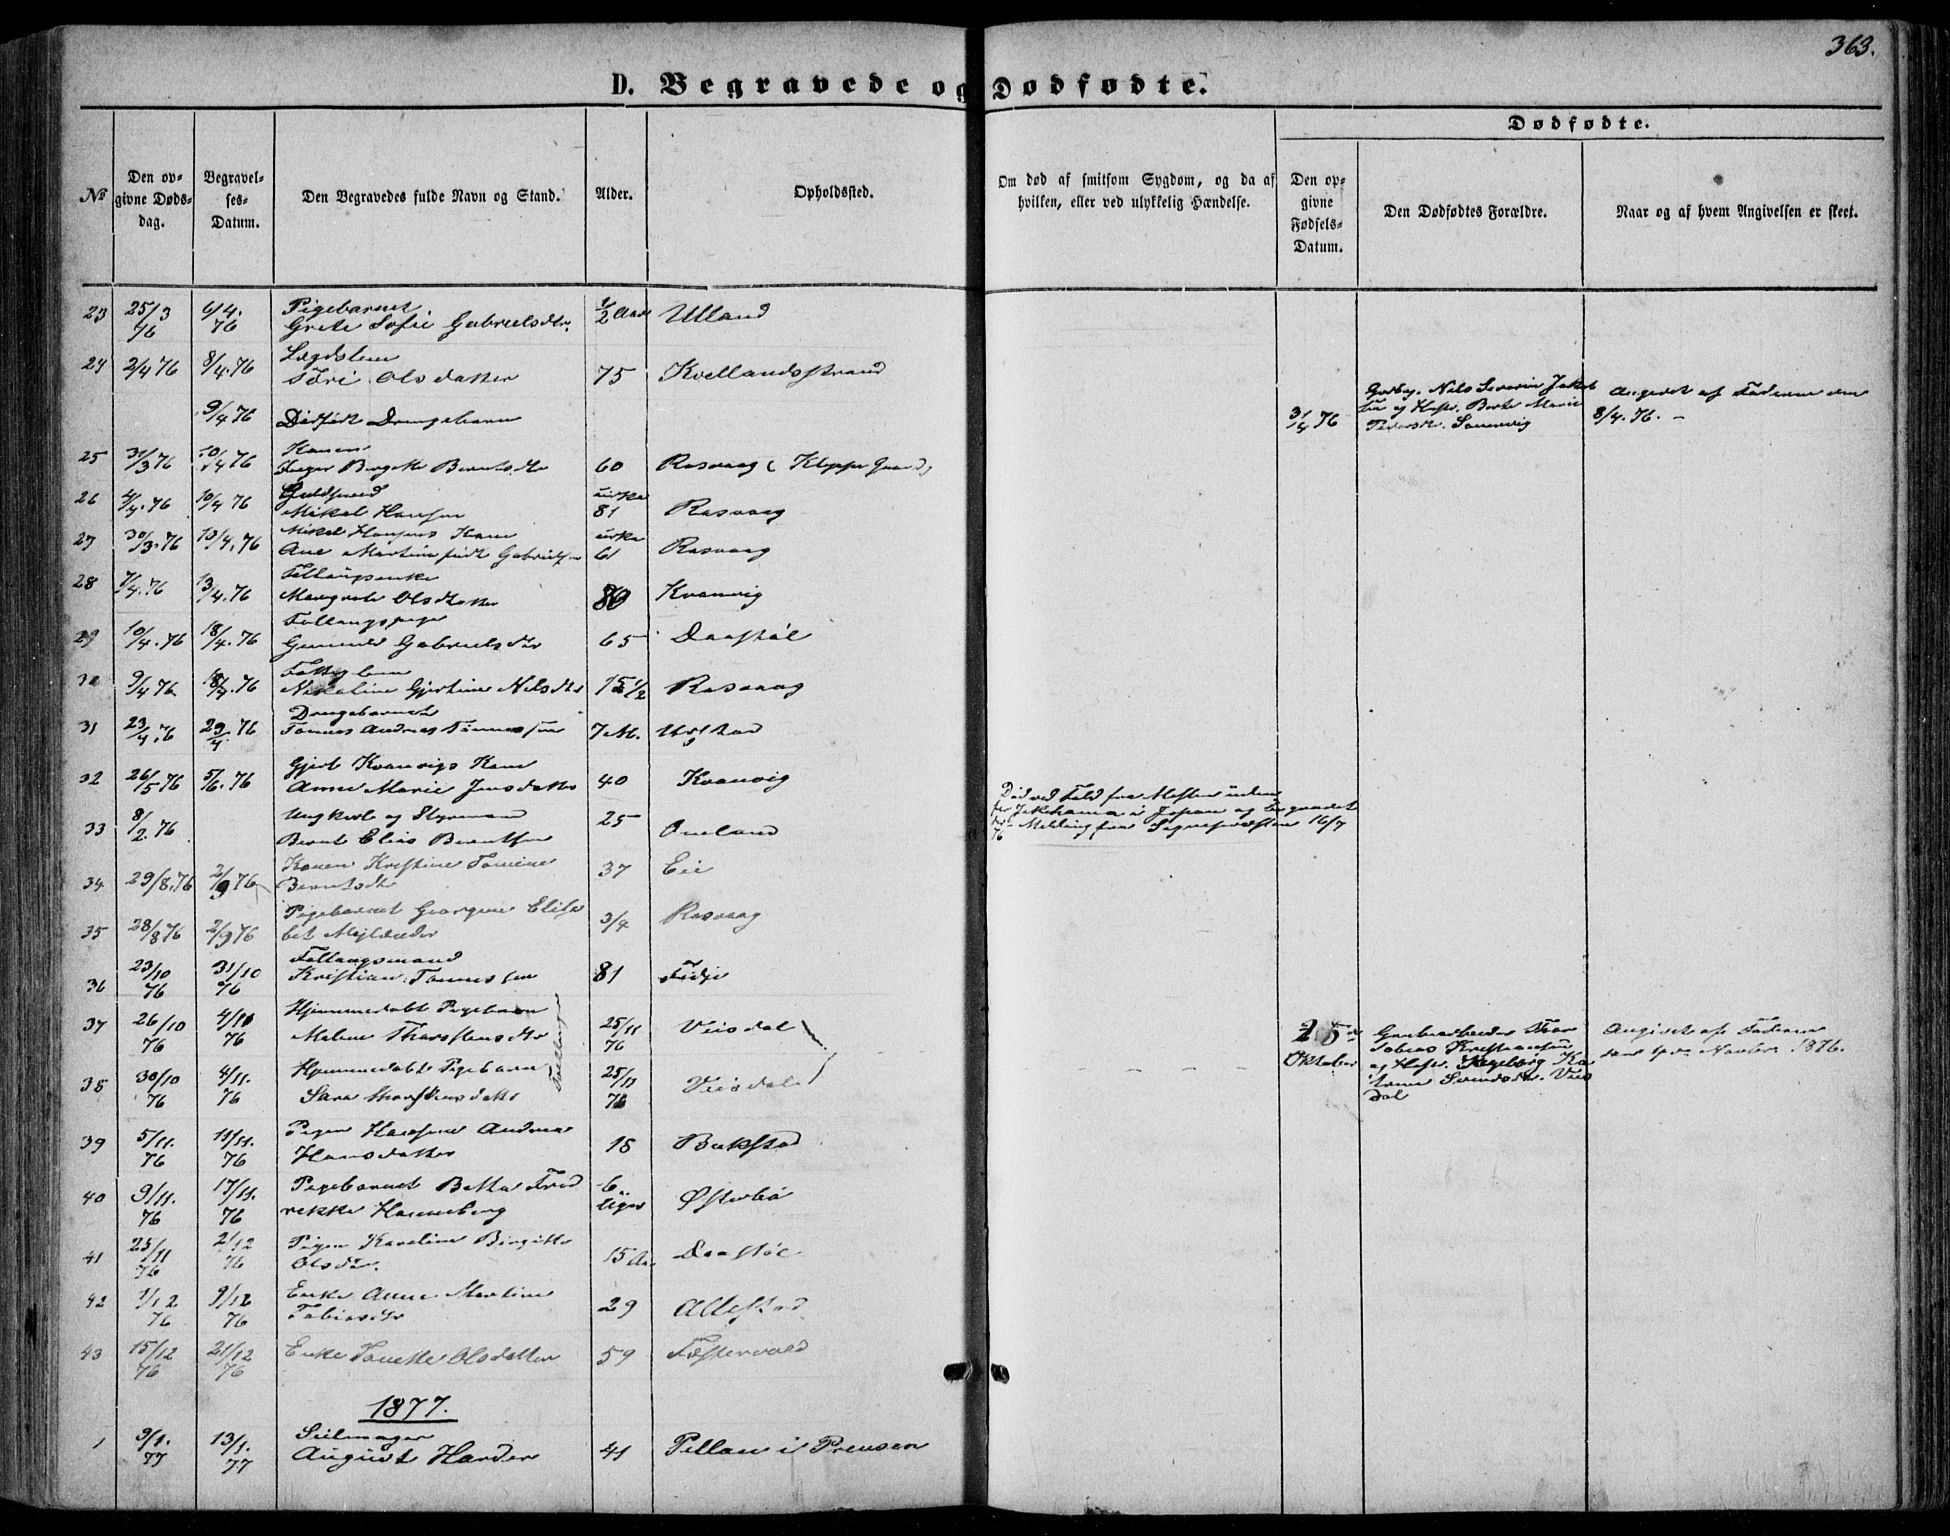 363.
D. Begravede og Dødfødte.
Dødfødte.
No
Den opgivne Dødsdag.
Begravelses-Datum.
Den Begravedes fulde Navn og Stand.
Alder.
Opholdssted.
Om død af smitsom Sygdom, og da af hvilken, eller ved ulykkelig Hændelse.
Den opgivne Fødsels-Datum.
Den Dødfødtes Forældre.
Naar og af hvem Angivelsen er skeet.
23 25/3 76 6/4. 76 Pigebarnet
Grete Sofie Gabrielsdtr. 1/2 Aar Ulland
24 2/4 76 8/4. 76 Lægdslem
Siri Olsdatter 75 Kvellandsstrand
9/4 76 Dødfødt Drengebarn 3/4 76
Nils Severin Jakob
sen og Hustr. Berte Marie
Pedersdtr.
Angivet af Faderen den
8/4. 76. -
25 31/3 76 10/4 76 Konen
Inger Birgitte Berntsdtr 60 Rasvaag
26 4/4. 76 10/4 76 Guldsmed
Mikal Hansen cirka 81 Rasvaag
27 30/3. 76 10/4. 76 Mikal Hansens Kone
Ane Martine født Gabrielsen cirka 61 Rasvaag
28 7/4. 76 13/4. 76 Follaugsenke
Margrete Olsdatter 80 Kvanvig
29 10/4. 76 18/4. 76 Follaugspige
Gunnild Gabrielsdtr 65 Daastøl
30 9/4 76 18/4. 76 Fattiglem
Nikoline Gjertine Nilsdtr 75 1/2 Rasvaag
31 23/4. 76 29/4. 76 Drengebarnet
Tønnes Andreas Tønnessen 7 M. Urstad
32 26/5 76 5/6. 76 Gjert Kvanvigs Kone
Anne Marie Jensdatter 40 Kvanvig
33 8/2. 76 Ungkarl og Styrmand
Bernt Elias Berntsen 25 Omland
Død ved Fald fra Masten uden
for Jokohama i Japan og begravet
der - Melding fra Sognepræsten 16/7
76
34 29/8. 76 2/9 76 Konen Kristine Tomine
Berntsdtr 37 Eie
35 28/8 76 2/9 76 Pigebarnet Georgine Elisa
bet 3/4 Rasvaag
36 23/10 76 31/10 76 Follaugsmand
Kristian Tønnessen 81 Fidje
37 26/10 76 4/11 76 Hjemmedøbt Pigebarn
Malene Thorstensdtr 25/11 76 Veisdal
38 30/10 76 4/11. 76 Hjemmedøbt Pigebarn
Sara Thorstensdatter 25/11 76 Veisdal
25de
Oktober
Gaardarbeider Thor
Tobias Kristiansen
og Hustr. Ingeborg Ka
trine
Veis
dal
Angivet af Faderen
den 4de Novbr. 1876.
39 5/11. 76 11/11. 76 Pigen Hansine Andrea
Hansdatter 18 Bukstad
40 9/11. 76 17/11. 76 Pigebarnet Betta Fred
rekke Hanneberg 6 Uger Østerbø
41 25/11 76 2/12 76 Pigen Karoline Birgitte
Olsdtr. 15 Aar Daastøl
42 1/12 76 9/12 76 Enke Anne Martine
Tobiasdtr 29 Allestad
43 15/12 76 21/12 76 Enke Tonette Olsdatter 59 Fæstervold
1877.
1 3/1. 77 13/1. 77 Seilmager
August Harder 41 Pillau i Preusen